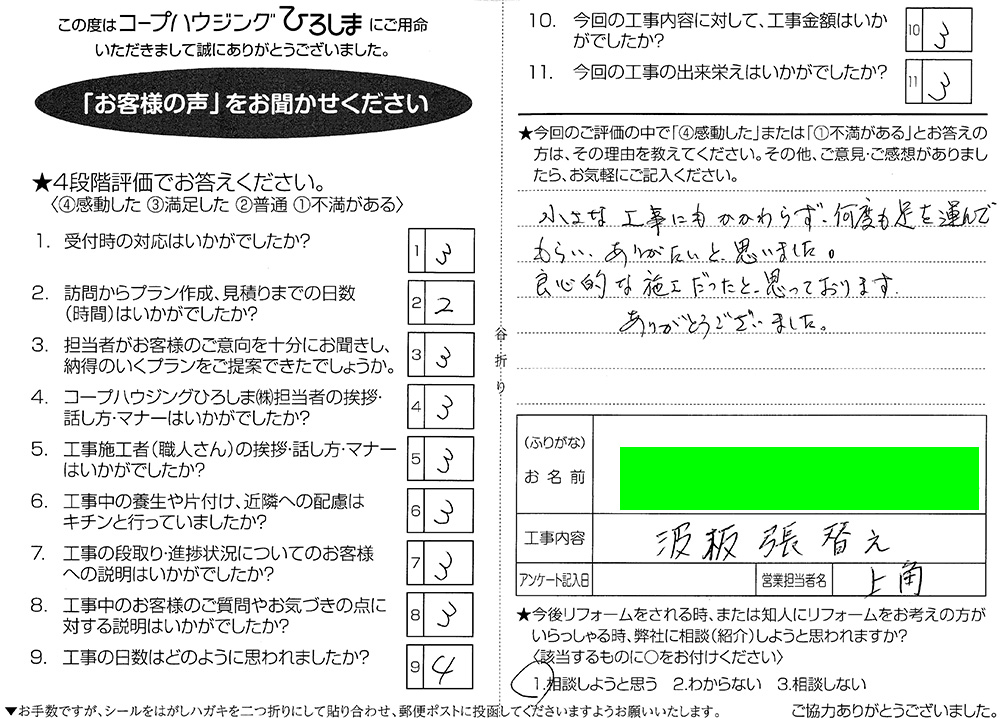 この度はコープハウジングひろしまにご用命
いただきまして誠にありがとうございました。
「お客様の声」をお聞かせください
★4段階評価でお答えください。
〈④感動した ③満足した ②普通 ①不満がある〉
1. 受付時の対応はいかがでしたか?
1 3
2. 訪問からプラン作成、見積りまでの日数
（時間）はいかがでしたか?
2 2
3. 担当者がお客様のご意向を十分にお聞きし、
納得のいくプランをご提案できたでしょうか。
3 3
4. コープハウジングひろしま㈱担当者の挨拶・
話し方・マナーはいかがでしたか?
4 3
5. 工事施工者（職人さん）の挨拶・話し方・マナー
はいかがでしたか?
5 3
6. 工事中の養生や片付け、近隣への配慮は
キチンと行っていましたか?
6 3
7. 工事の段取り・進捗状況についてのお客様
への説明はいかがでしたか?
7 3
8. 工事中のお客様のご質問やお気づきの点に
対する説明はいかがでしたか?
8 3
9. 工事の日数はどのように思われましたか?
9 4
▼お手数ですが、シールをはがしハガキを二つ折りにして貼り合わせ、郵便ポストに投函してくださいますようお願いいたします。
谷折り
10. 今回の工事内容に対して、工事金額はいか
がでしたか?
10 3
11. 今回の工事の出来栄えはいかがでしたか?
11 3
★今回のご評価の中で「④感動した」または「①不満がある」とお答えの
方は、その理由を教えてください。その他、ご意見・ご感想がありまし
たら、お気軽にご記入ください。
小さな工事にもかかわらず、何度も足を運んで
もらい、ありがたいと思いました。
良心的な施工だったと思っております。
ありがとうございました。
（ふりがな）
お名前
工事内容 波板張替え
アンケート記入日 営業担当者名 上角
★今後リフォームをされる時、または知人にリフォームをお考えの方が
いらっしゃる時、弊社に相談（紹介）しようと思われますか?
〈該当するものに○をお付けください〉
1.相談しようと思う 2.わからない 3.相談しない
ご協力ありがとうございました。